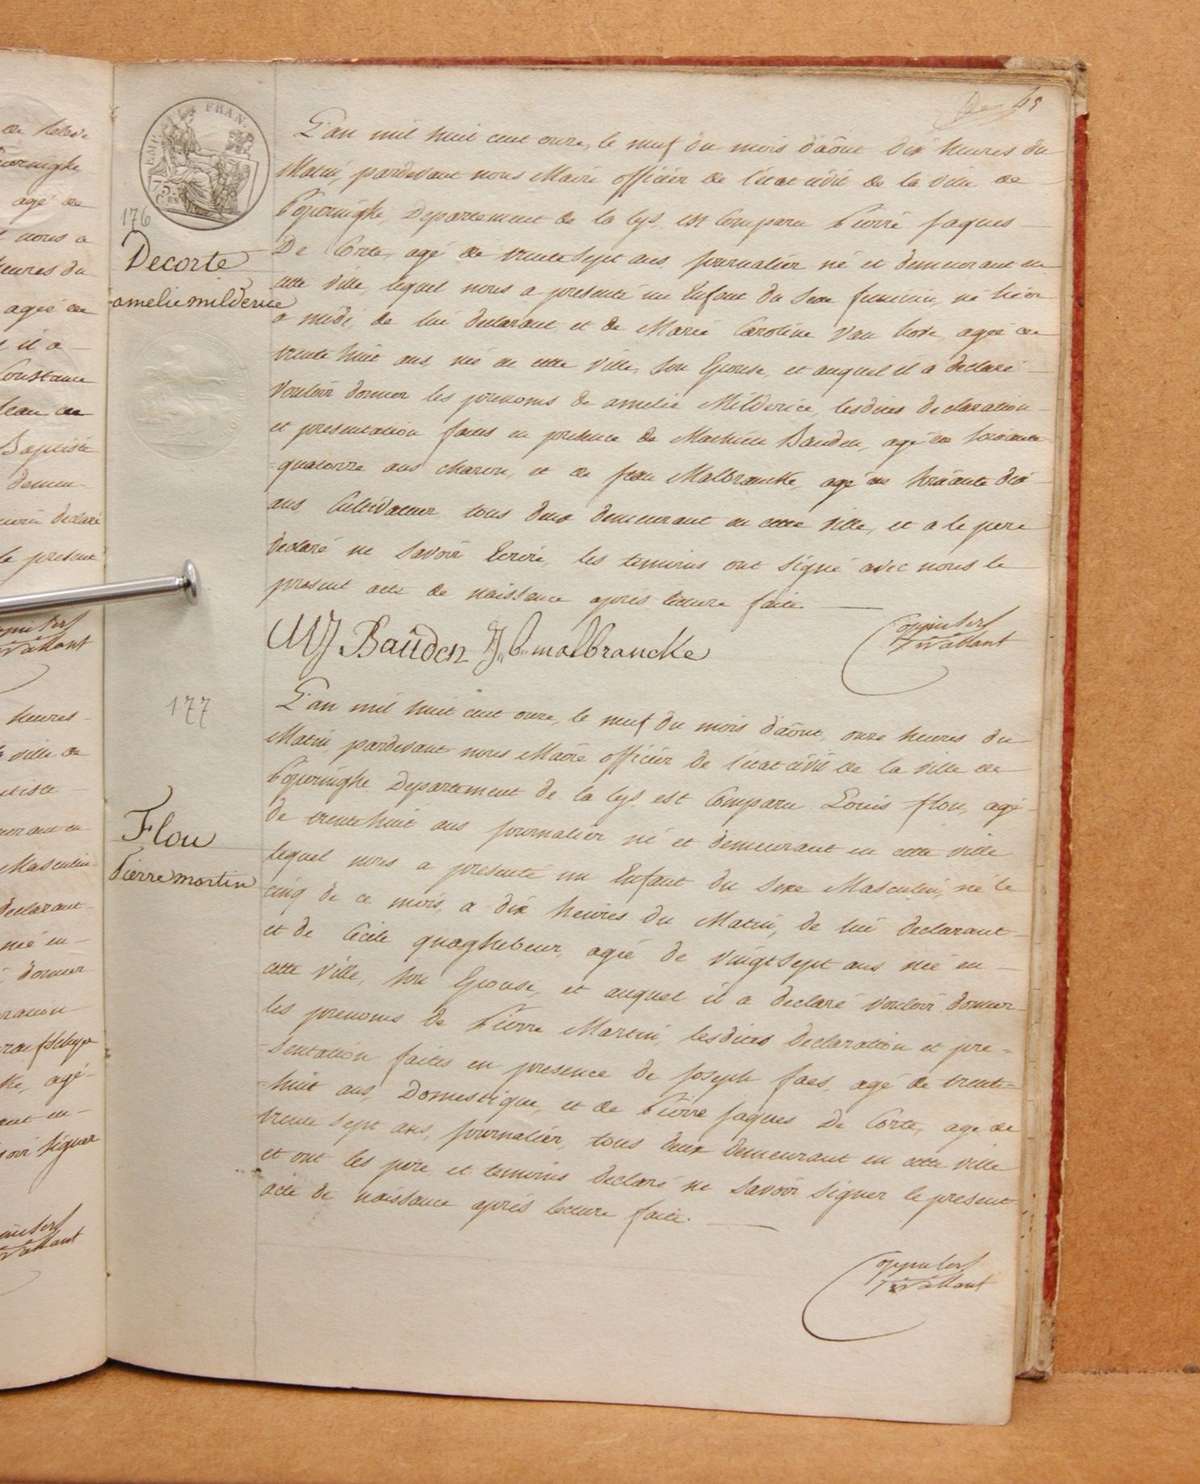 45
176
Decorte
amelie milderice
L'an mil huit cent onze, le neuf du mois d'aôut dix heures du
Matin, pardevant nous Maire officier de l'etat civil de la ville de
Poperinghe, Departement de la Lys, est Comparu Pierre Jaques
De Corte, agé de trente sept ans journalier né et demeurant en
cette ville, lequel nous a presenté un Enfant du Sexe feminin, né hier
a midi, de lui declarant et de Marie Caroline Van hove, agée de
trente huit ans, née en cette ville, son Epouse, et auquel il a declaré
vouloir donner les prenoms de amelie Milderice, lesdites declaration
et presentation faites en presence de Mathieu Bauden, agé de soixante
quatorze ans charon, et de jean Malbrancke, agé de soixante dix
ans Cultivateur tous deux demeurant en cette ville, et a le pere
declaré ne savoir Ecrire, les temoins ont signé avec nous le
present acte de naissance apres lecture faite.
MJ Bauden J. b. malbrancke
177
Flou
Pierre martin
L'an mil huit cent onze, le neuf du mois d'aôut, onze heures du
Matin pardevant nous Maire officier de l'etat civil de la ville de
Poperinghe Departement de la Lys est Comparu Louis flou, agé
de trente huit ans journalier né et demeurant en cette ville
lequel nous a presenté un Enfant du Sexe Masculin, né le
cinq de ce mois, a dix heures du Matin, de lui declarant
et de Cecile quaghebeur, agée de vingt sept ans née en
cette ville, son Epouse, et auquel il a declaré vouloir donner
les prenoms de Pierre Martin, lesdites declaration et pre=
=sentation faites en presence de joseph faes, agé de trente=
=huit ans, Domestique, et de Pierre jaques De Corte, age de
trente sept ans, journalier, tous deux demeurant en cette ville
et ont les pere et temoins declaré ne savoir signer le present
acte de naissance après lecture faite.